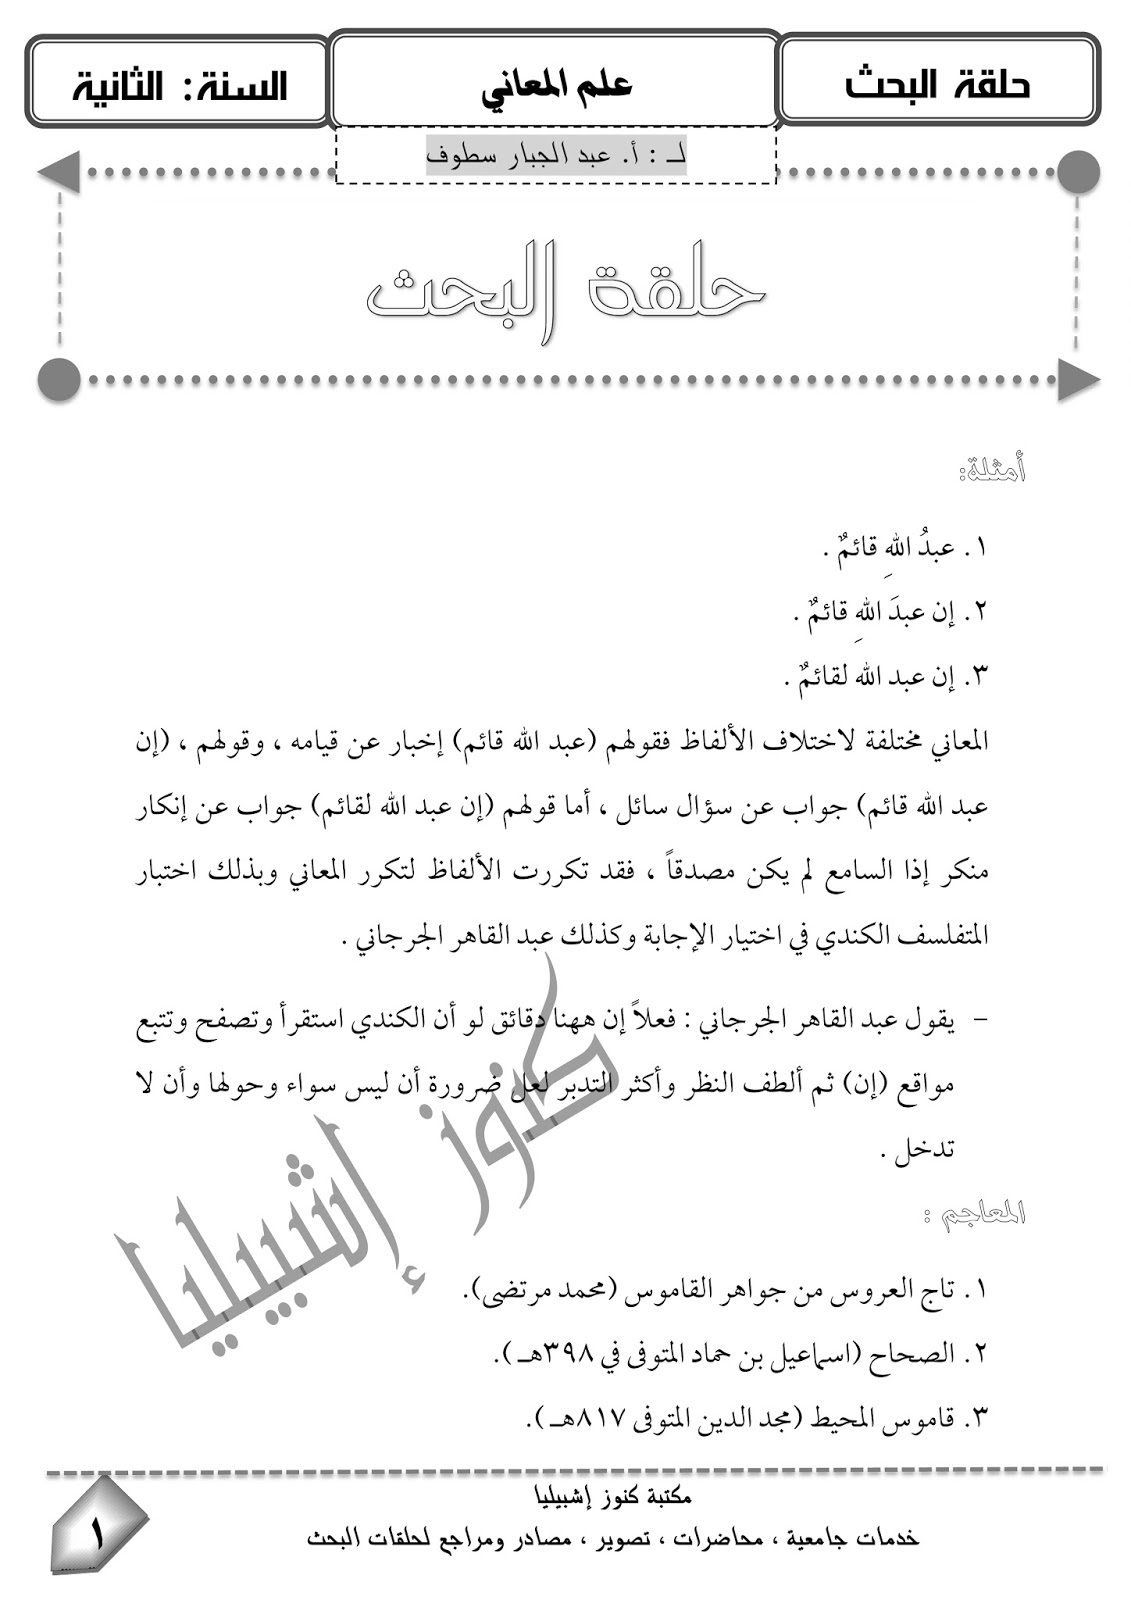 حلقة البحث
علم المعاني
السنة: الثانية
لـ : أ. عبد الجبار سطوف
حلقة البحث
أمثلة:
١. عبدُ اللهِ قائمٌ .
٢. إن عبدَ اللهِ قائمٌ .
٣. إن عبد الله لقائمٌ .
المعاني مختلفة لاختلاف الألفاظ فقولهم (عبد الله قائم) إخبار عن قيامه ، وقولهم ، (إن
عبد الله قائم) جواب عن سؤال سائل ، أما قولهم (إن عبد الله لقائم) جواب عن إنكار
منكر إذا السامع لم يكن مصدقاً ، فقد تكررت الألفاظ لتكرر المعاني وبذلك اختبار
المتفلسف الكندي في اختيار الإجابة وكذلك عبد القاهر الجرجاني .
– يقول عبد القاهر الجرجاني : فعلاً إن ههنا دقائق لو أن الكندي استقرأ وتصفح وتتبع
مواقع (إن) ثم ألطف النظر وأكثر التدبر لعل ضرورة أن ليس سواء وحولها وأن لا
تدخل .
كنوز إشبيليا
المعاجم :
١. تاج العروس من جواهر القاموس (محمد مرتضى).
٢. الصحاح (اسماعيل بن حماد المتوفى في ٣٩٨هـ ).
٣. قاموس المحيط (مجد الدين المتوفى ٨١٧هـ ).
مكتبة كنوز إشبيليا
خدمات جامعية ، محاضرات ، تصوير ، مصادر ومراجع لحلقات البحث
١